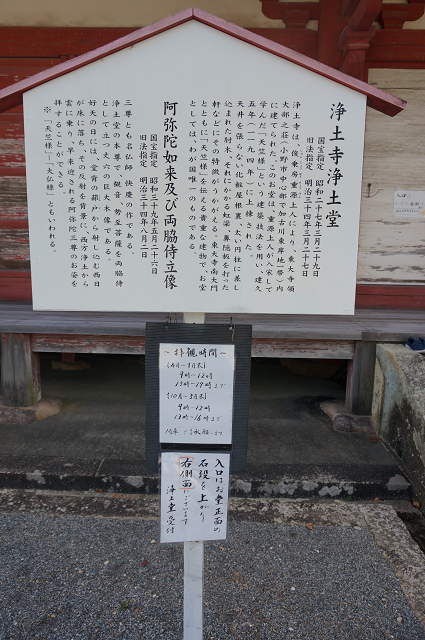 浄土寺浄土堂
国宝指定　昭和二十七年三月二十九日
旧法指定　明治三十四年三月二十七日
浄土寺は、俊乗房重源上人により、東大寺領
大部之荘（小野市中心部で加古川東岸地帯）内
に建てられた。このお堂は、重源上人が入宋して
学んだ「天竺様」という建築技法を用い、建久
五年（一一九四年）に上棟された。
天井を張らない化粧屋根裏、太い円柱に差し
込まれた肘木、それにかかる虹梁、鼻隠板を打った
軒などにその特徴がうかがえる。東大寺南大門
とともに「天竺様」を伝える貴重な建物で、お堂
としては、わが国唯一のものである。
阿弥陀如来及び両脇侍立像
国宝指定　昭和三十九年五月二十六日
旧法指定　明治三十四年八月二日
三尊とも名仏師　快慶の作である。
浄土堂の本尊で、観音、勢至菩薩を両脇侍
として立つ丈六の巨大木像である。
好天の日には、堂背の蔀戸から射し込む西日
が床に落ち、その反射を背景に、西方浄土から
雲に乗り、早く来迎される阿弥陀三尊のお姿を
拝することができる。
※「天竺様」―「大仏様」ともいわれる。
～拝観時間～
［4月～9月末］
9時～12時
13時～17時まで
［10月～3月末］
9時～12時
13時～16時まで
入口はお堂正面の
石段を上がり
右側面にございます
浄土堂受付